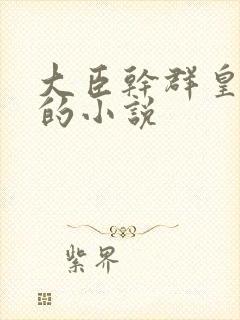 大臣幹群皇
的小說
紫界